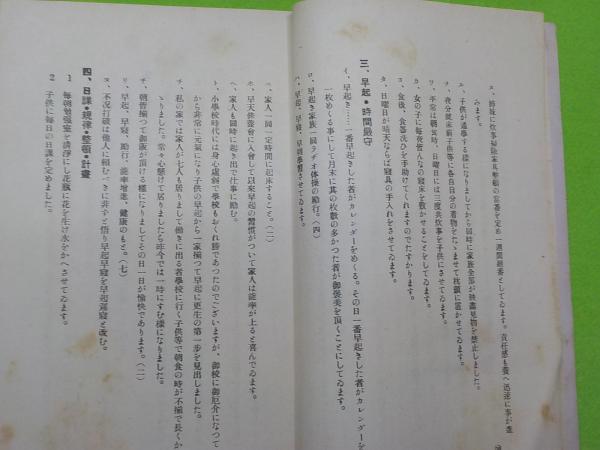 ヱ、姉妹に炊事掃除家具整頓の當番を定め一週間厳番としてゐます。責任感も養へ迅速に事が運
みます。
エ、子供が通學する様になりましてから同時に家族全部が映畫見物を禁止しました。
ヲ、夜分就床前子供等に各自自分の着物をたゝませて枕頭に置かせてゐます。
ワ、平常は朝食時、日曜日には三度共炊事を子供にさせてゐます。
カ、女の子に毎夜皆んなの寝床を敷かせることをしてゐます。
ヨ、食後、食器洗ひを手助けてくれますのでたすかります。
タ、日曜日が晴天ならば寝具の手入れをさせてゐます。
三、早起・時間厳守
イ、早起き……一番早起きした者がカレンダーをめくる。その日一番早起きした者がカレンダーを
一枚めくる事にして月末に其の枚數の多かつた者が御褒美を頂くことにしてゐます。
ロ、早起き家族一同ラヂオ体操の勵行。(四)
ハ、早起、早寝、早朝學習させてゐます。
ニ、家人一同一定時間に起床すること。(二)
ホ、早天禮拜會に入會して以來早起の習慣がついて家人は能率が上ると喜んでゐます。
ヘ、家人も同時に起き出で仕事に勵む。
ト、小學校時代には身心虚弱で學校もおくれ勝であつたのでございますが、御校に御厄介になつて
から非常に元氣になり子供の早起から一家揃つて早起に更生の第一歩を見出しました。
チ、私の家では家人が七人も居りまして働きに出る者學校に行く子供等で朝食の時が不揃で長くか
ゝりました。常々心懸けて居りましたら昨今では一時にすむ様になりました。
チ、朝皆揃つて御飯が頂ける様になりましてその日一日が愉快であります。(二)
リ、早起、早寝、勵行、能率增進、健康のもと。(七)
ヌ、不況打破は他人に頼むべきに非ずと悟り早起早寝を早起遅寝と改む。
四、日課・規律・整頓・計畫
1 每朝勉强室を清淨にし花瓶に花を生け水をかへさせてゐます。
2 子供に每日の日課を定めました。